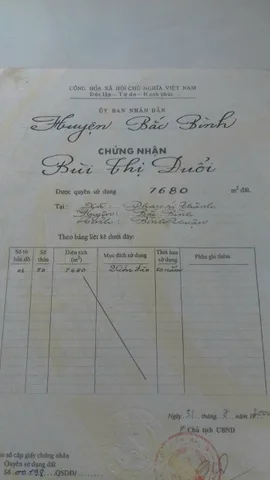 CỘNG HÒA XÃ HỘI CHỦ NGHĨA VIỆT NAM
Độc lập - Tự do - Hạnh phúc
ỦY BAN NHÂN DÂN
Huyện Bắc Bình
CHỨNG NHẬN
Bùi Thị Đuổi
Được quyền sử dụng 7680 m² đất.
Tại: Xã Phan Thanh
Huyện Bắc Bình
Tỉnh Bình Thuận
Theo bảng liệt kê dưới đây:
Số tờ bản đồ Số thửa Diện tích (m²) Mục đích sử dụng Thời hạn sử dụng Phần ghi thêm
7680
Ngày 31 tháng
Chủ tịch UBND
o số cấp giấy chứng nhận
Quyền sử dụng đất
Số QSDĐ/